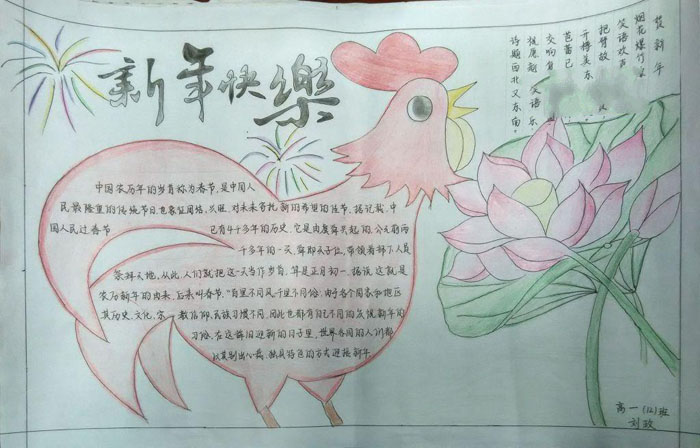 新年快樂
贺新年
烟花爆竹
笑语欢声
把臂故
开樽美东
芭蕾已
交响直
抚屏刻 笑语乐
诗题西北又东南。
中国农历年的岁首称为春节,是中国人
民最隆重的传统节日,也象征团结、兴旺,对未来寄托新的希望的佳节。据记载,中
国人民过春节
已有4千多年的历史。它是由虞舜兴起的。公元前两
千多年的一天,舜即天子位,带领着部下人员
祭拜天地。从此,人们就把这一天当作岁首,算是正月初一。据说,这就是
农历新年的由来,后来叫春节。"百里不同风,千里不同俗",由于各个国家和地区
其历史、文化、宗 教信仰、民族习惯不同,因此也都有自己不同的
习俗。在这辞旧迎新的日子里,世界各国的人们都
以其别出心裁、独具特色的方式迎接新年
高一(12)班
刘政